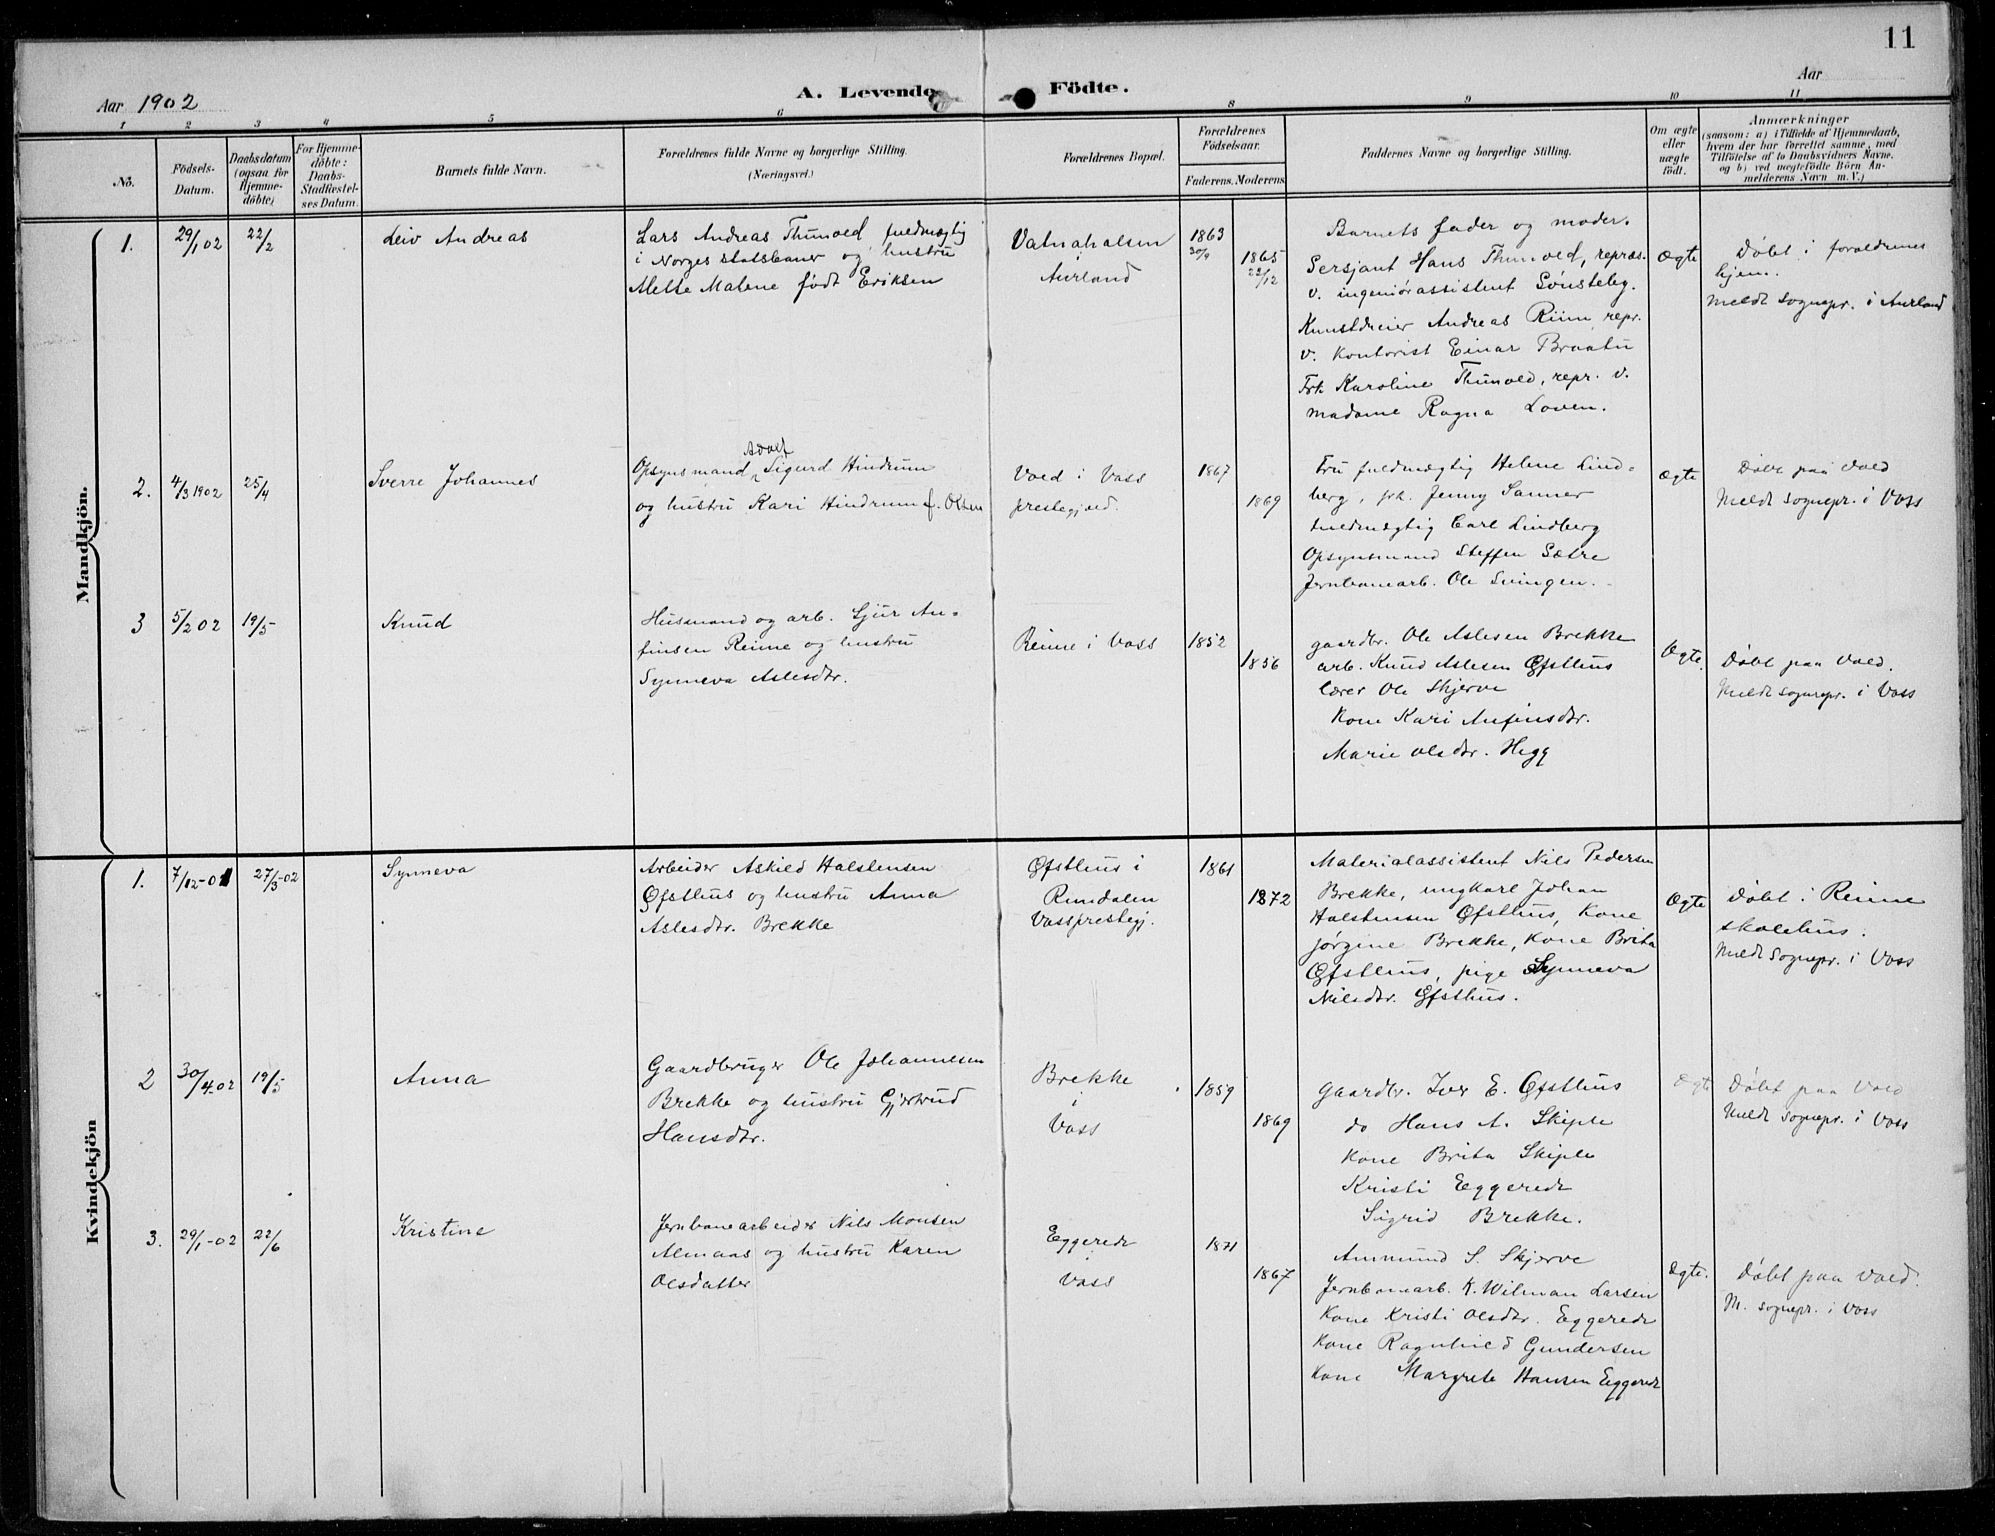 11
Aar 1902
A. Levende Födte.
Aar
1 2 3 4 5 6 8 9 10 11
No.
Födsels-
Datum.
Daabsdatum
(ogsaa for
Hjemme-
döbte)
For Hjemme-
döbte:
Daabs-
Stadfæstel-
ses Datum.
Barnets fulde Navn.
Forældrenes fulde Navne og borgerlige Stilling.
(Næringsvei.)
Forældrenes Bopæl.
Forældrenes
Födselsaar.
Faderens. Moderens.
Faddernes Navne og borgerlige Stilling.
Om ægte
eller
uægte
födt.
Anmærkninger
(saasom: a) i Tilfælde af Hjemmedaab,
hvem der har forrettet samme, med
Tilföielse af to Daabsvidners Navne.
og b) ved uægtefödte Börn An-
melderens Navn m. V.)
Mandkjön.
1.
29/1 02
22/2
Leiv Andreas
Lars Andreas Thinvold fuldmægtig
i Norges statsbaner og hustru
Mette Malene født Eriksen
Vatnahalsen
Aurland
1863
30/9
1865
22/12
Barnets fader og moder.
Sersjant Hans Thinvold, repræs.
v. ingeniørassistent Sønsteby.
Kunstdreier Andreas Riim, repr.
v. kontorist Einar Braatu
Frk Karoline Thinvold, repr. v.
madame Ragna Loven.
Ægte
Døbt i forældrenes
hjem.
Meldt sognepr. i Aurland
2.
4/3 1902
25/4
Sverre Johannes
Adolf
Opsynsmand Sigurd Hindrum
og hustru Kari Hindrum f. Olsen
Vold i Vass
prestegjæld.
1867
1869
Fru fuldmægtig Helene Lind-
berg, frk. Jenny Sanner
fuldmægtig Carl Lindberg
Opsynsmand Steffen Sætre
Jernbanearb. Ole Svingen.
Ægte
Døbt paa Vold
Meldt sognepr. i Voss
3
5/2 02
19/5
Knud
Husmand og arb. Sjur An-
finsen Reime og hustru
Synneva Aslesdtr.
Reime i Vass
1852
1856
gaardbr. Ole Aslesen Brekke
arb. Knud Aslesen Øfsthus
lærer Ole Skjerve
Kone Kari Anfinsdtr.
Marie Olsdtr. Hegg
Ægte.
Døbt paa Vold.
Meldt sognepr. i Voss
Kvindekjön
1.
7/12-01
27/3-02
Synneva
Arbeider Askild Halstensen
Øfsthus og hustru Anna
Aslesdtr. Brekke
Øfsthus i
Rundalen
Vassprestegj.
1861
1872
Materialassistent Nils Pedersen
Brekke, ungkarl Johan
Halstensen Øfsthus, Kone
Jørgine Brekke, Kone Brita
Øfsthus, pige Synneva
Nilsdtr. Øfsthus.
Ægte
Døbt i Reime
skolehus.
Meldt sognepr. i Voss
2
30/4-02
19/5
Anna
Gaardbruger Ole Johannesen
Brekke og hustru Gjertrud
Hansdtr.
Brekke
i
Voss
1859
1869
Gaardbr. Iver E. Øfsthus
do Hans A. Skiple
Kone Brita Skiple
Kristi Eggerede
Sigrid Brekke.
Ægte
Døbt paa Vold
Meldt sognepr. i Voss
3.
29/1-02
22/6
Kristine
Jernbanearbeider Nils Monsen
Almaas og hustru Karen
Olsdatter
Eggerede
i
Voss
1871
1867
Ammund S. Skjerve
Jernbanearb. K. Wilman Larsen
Kone Kristi Olsdtr. Eggerede
Kone Ragnhild Gundersen
Kone Margrete Hansen Eggerede
Ægte.
Døbt paa Vold.
M. sognepr. i Voss